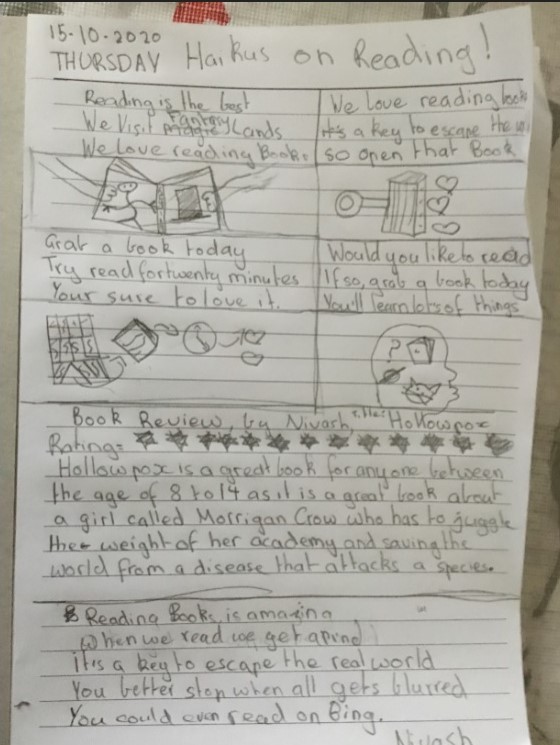 15-10-2020
THURSDAY Haikus on Reading!
Reading is the best
We Visit Fantasy Lands
We Love reading Books
We Love reading books
it's a key to escape the
so open that Book
Grab a book today
Try read for twenty minutes
Your sure to love it.
Would you like to read
If so, grab a book today
You'll learn lots of things
?
Book Review, by Nivash, title: Hollowpox
Rating=
Hollowpox is a great book for anyone between
the age of 8 to 14 as it is a great book about
a girl called Morrigan Crow who has to juggle
the weight of her academy and saving the
world from a disease that attacks a species.
Reading Books is amazing
When we read we get
it's a key to escape the real world
You better stop when all gets blurred
You could even read on Bing.
Nivash